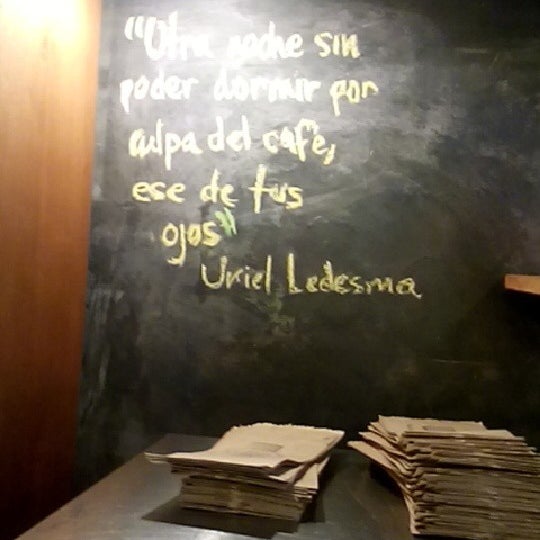 "Otra noche sin
poder dormir por
culpa del café,
ese de tus
ojos"
Uriel Ledesma